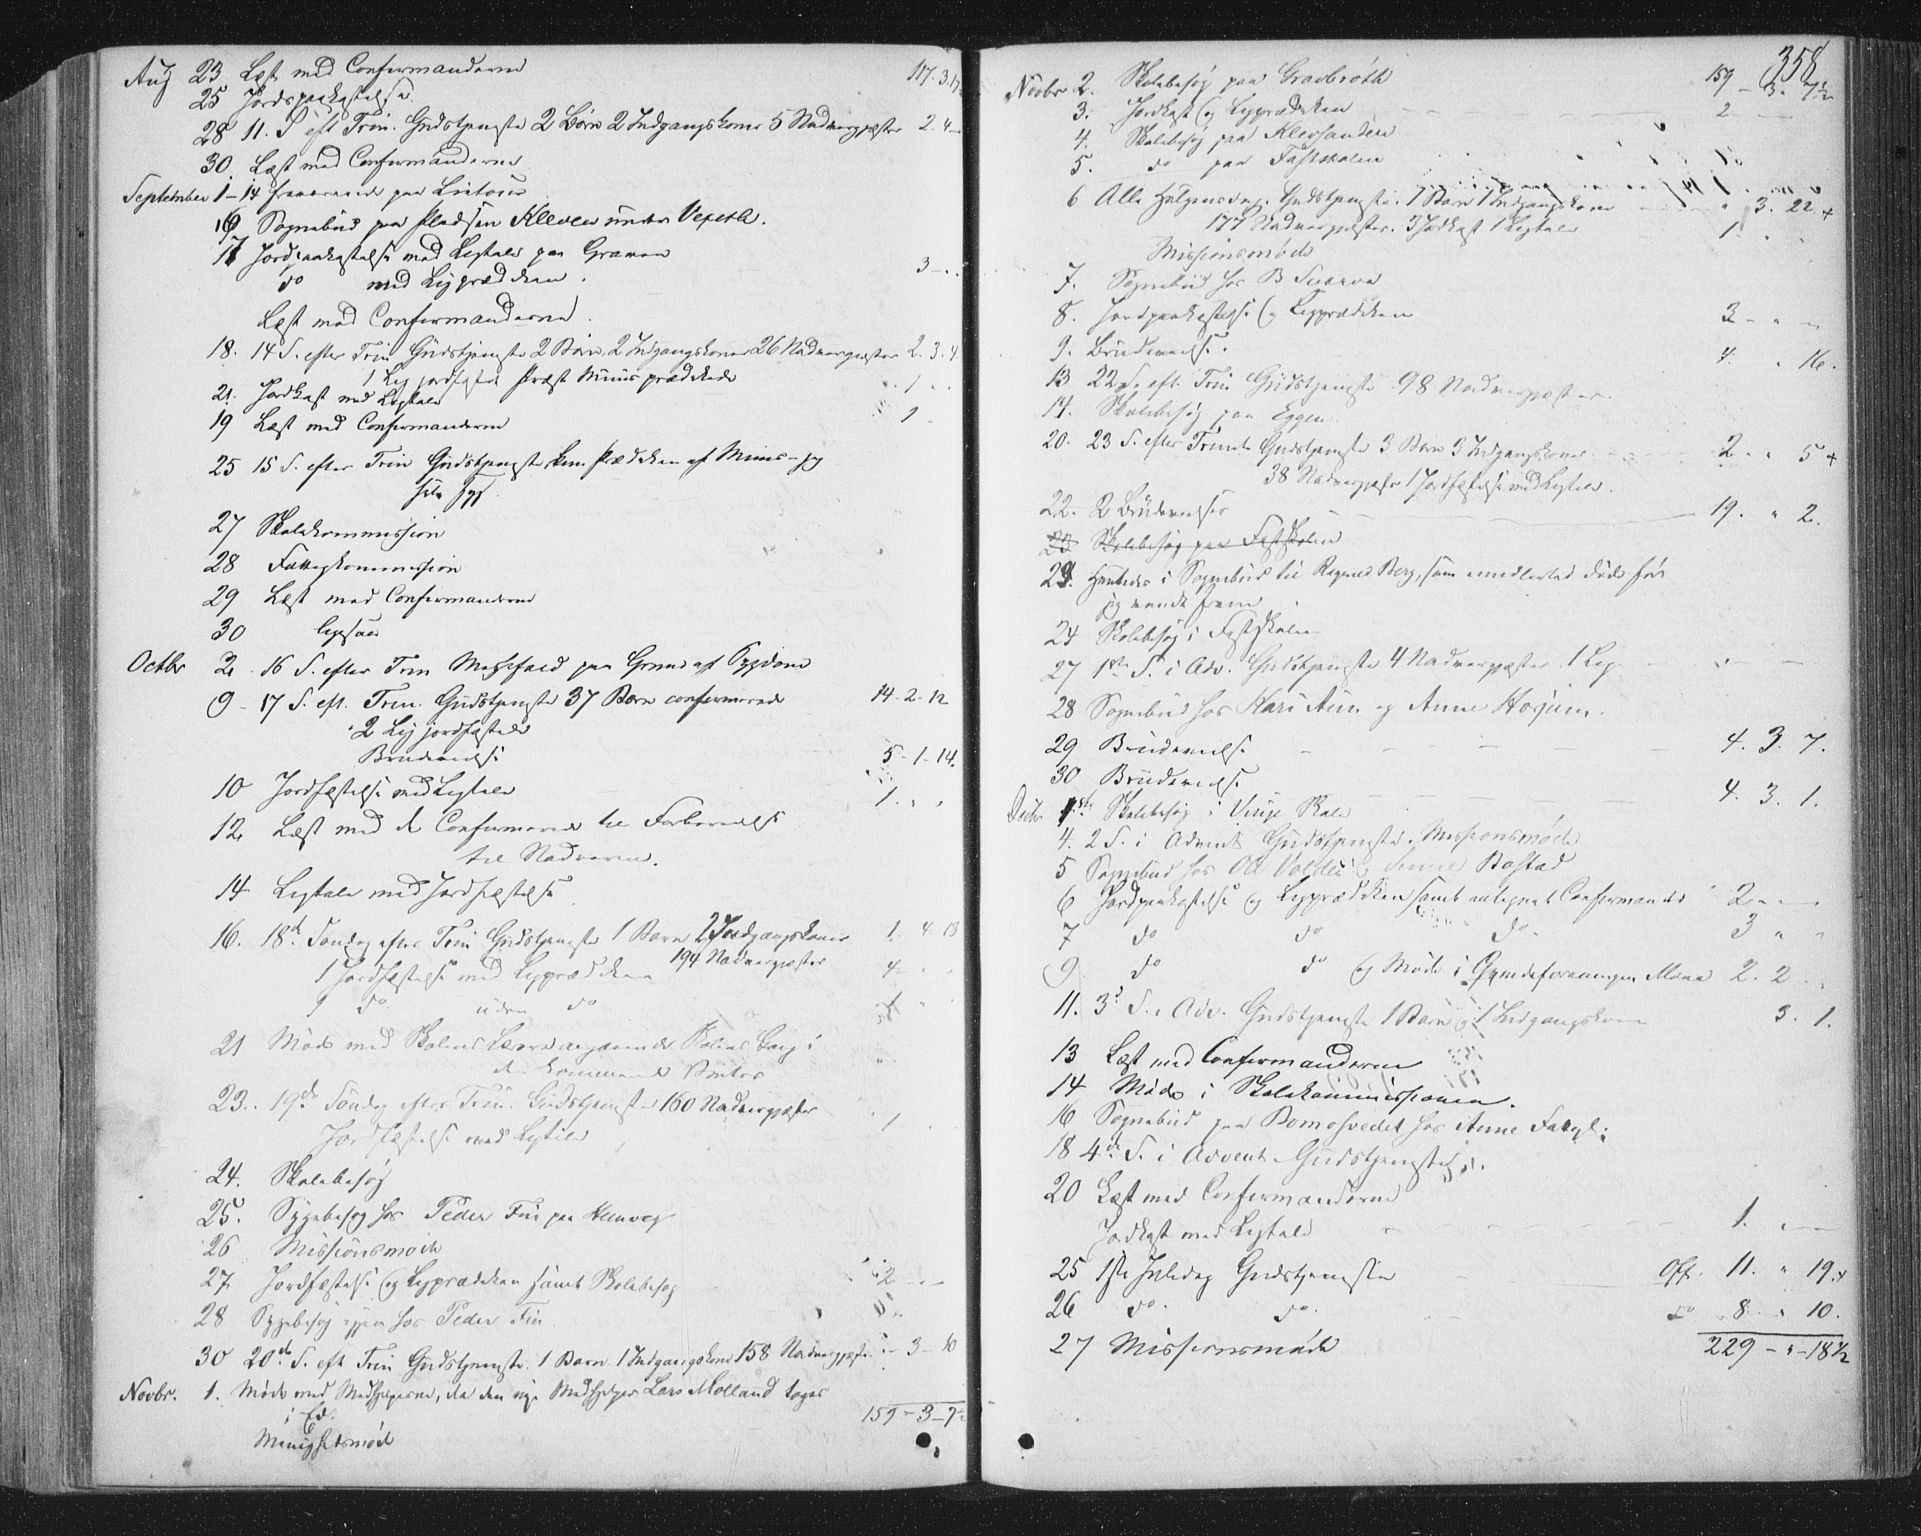 Aug 23 Læst med Confirmanderne 117.3.17
25 Jordpaakastelse.
28 11. S eft Trin. Gudstjeneste 2 Børn 2 Indgangskoner 5 Nadvergjæster 2. 4 –
30. Læst med Confirmanderne
September 1–14 fraværende paa
16 Sognebud paa Pladsen Kleven under
17 Jordpaakastelse med Ligtale paa Graven 3 – . .
do med Ligprædiken.
Læst med Confirmanderne.
18. 14 S. efter Trin Gudstjeneste 2 Børn, 2 Indgangskoner 26 Nadvergjæster 2. 3. 4
1 Lig jordfæstet Præst Muus prædikede
21. Jordkast med Ligtale 1 . .
19 Læst med Confirmanderne 1
25 15 S. efter Trin Gudstjeneste, Prædiken af Muus – jeg
selv syg.
27 Skolekommission
28 Fattigkommission
29 Læst med Confirmanderne
30 ligesaa
Octbr 2. 16 S. efter Trin Messefald paa Grund af Sygdom
9 – 17 S. eft. Trin. Gudstjeneste 37 Børn confirmerede 14 - 2 - 12
2 Lig jordfæstede
Brudevielse 5 - 1 - 14.
10 Jordfæstelse med Ligtale 1. „ „
12 Læst med de Confirmerede til Forberedelse
til Nadveren.
14 Ligtale med Jordfæstelse
16. 18d Søndag efter Trin Gudstjeneste 1 Barn 2 Indgangskoner 1. 4. 13
194 Nadvergjæster
1 Jordfæstelse med Ligprædiken 4
1 do uden do
21 Møde med Skolens Lærere angaaende Skolens Gang i
den kommende Vinter
23. 19de Søndag efter Trin. Gudstjeneste 160 Nadvergjæster
Jordfæstelse med Ligtale 1 .
24. Skolebesøg
25. Sygebesøg hos Peder Fin paa
26 Missionsmøde
27 Jordfæstelse og Ligprædiken samt Skolebesøg 2 – –
28 Sygebesøg igjen hos Peder Fin.
30 20de S. eft Trin Gudstjeneste. 1 Barn. 1 Indgangskone 158 Nadvergjæster – 3 – 10
Novbr. 1. Møde med Medhjelperne, da den nye Medhjelper Lars Molland toges
i Ed. 159 – 3 – 7½
Menighedsmøde
358
Novbr 2. Skolebesøg paa Gravbrøth 159 – 3. 7½
3. Jordkast og Ligprædiken 2. –
4. Skolebesøg paa Klevsanden
5. do paa Fastskolen
6 Alle Helgensdag. Gudstjeneste. 1 Barn 1 Indgangskone „ 3. 22. +
177 Nadvergjæster. 3 Jordkast 1 Ligtale 1. „ „
Missionsmøde
7. Sognebud hos B
8. Jordpaakastelse og Ligprædiken 2 – „ –
9. Brudevielse. 4. „ 16.
13 22 S. eft. Trin Gudstjeneste. 98 Nadvergjæster.
14. Skolebesøg paa Eggen
20. 23 S. efter Trinit. Gudstjeneste 3 Børn 3 Indgangskoner 2. „ 5 +
38 Nadvergjæster 1 Jordfæstelse med Ligtale.
22. 2 Brudevielser 19. „ 2.
23 Skolebesøg paa Fastskolen
23. Hentedes i Sognebud til Berg, som imidlertid døde før
jeg naade frem
24 Skolebesøg i Fastskolen
27 1ste S. i Adv. Gudstjeneste 4 Nadvergjæster. 1 Lig
28 Sognebud hos Kari Aun og Anne
29 Brudevielse – – – 4. 3. 7.
30 Brudevielse 4. 3. 1.
Decbr 1ste Skolebesøg i Skole
4. 2 S. i Advent Gudstjeneste. Missionsmøde
5 Sognebud hos og Anne Bostad
6 Jordpaakastelse og Ligprædiken samt Confirmander 2 –
7 do do do 3 „ „
9 do do og Møde i Bygdeforeningen 2. 2 . .
11. 3d S. i Adv. Gudstjeneste 1 Barn og 1 Indgangskone 3. 1.
13 Læst med Confirmanderne
14 Møde i Skolekommissionen.
16 Sognebud paa hos Anne
18 4de S. i Advent Gudstjeneste
20 Læst med Confirmanderne
Jordkast med Ligtale 1. – –
25 1ste Juledag Gudstjeneste Off. 11. „ 19. +
26 do. do. do 8. „ 10.
27 Missionsmøde 229 – „ – 18½